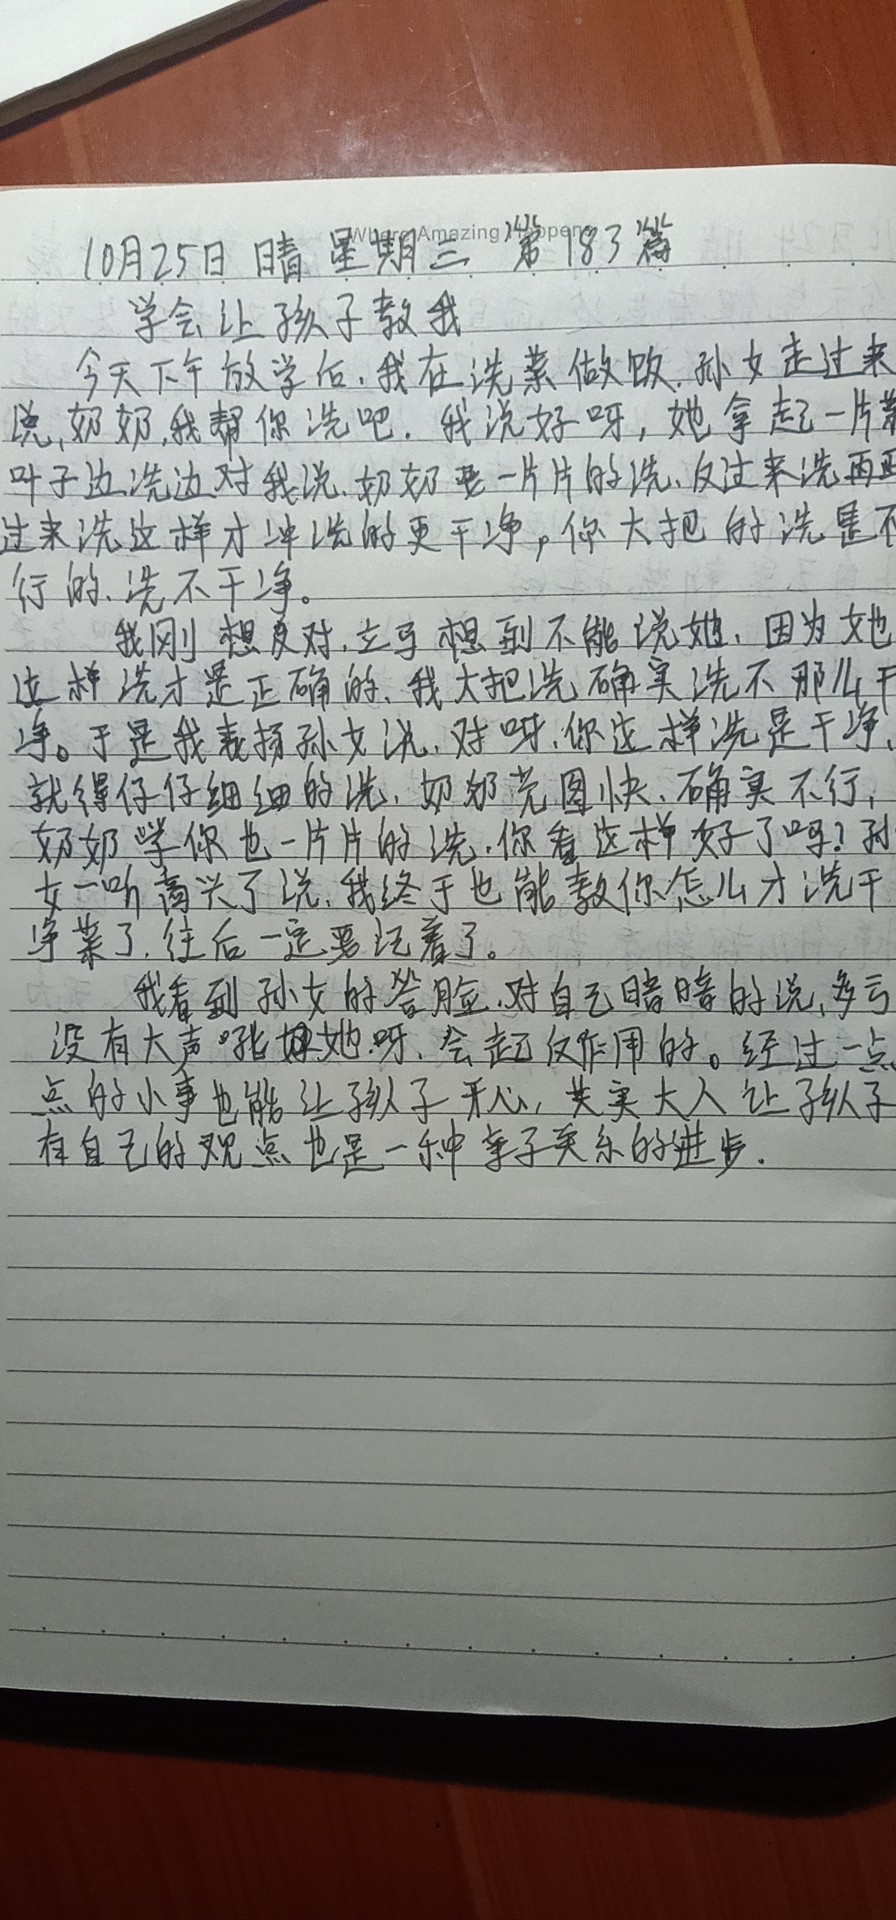 Where Amazing Happens
10月25日 晴 星期三 第183篇
学会让孩子教我
今天下午放学后,我在洗菜做饭,孙女走过来
说,奶奶,我帮你洗吧.我说好呀,她拿起一片菜
叶子边洗边对我说,奶奶要一片片的洗,反过来洗再正
过来洗这样才冲洗的更干净,你大把的洗是不
行的,洗不干净。
我刚想反对,立马想到不能说她,因为她
这样洗才是正确的,我大把洗确实洗不那么干
净。于是我表扬孙女说,对呀,你这样洗是干净,
就得仔仔细细的洗,奶奶光图快,确实不行,
奶奶学你也一片片的洗,你看这样好了吗?孙
女一听高兴了说,我终于也能教你怎么才洗干
净菜了,往后一定要记着了。
我看到孙女的笑脸,对自己暗暗的说,多亏
没有大声吼她呀,会起反作用的。经过一点
点的小事也能让孩子开心,其实大人让孩子
有自己的观点也是一种亲子关系的进步.